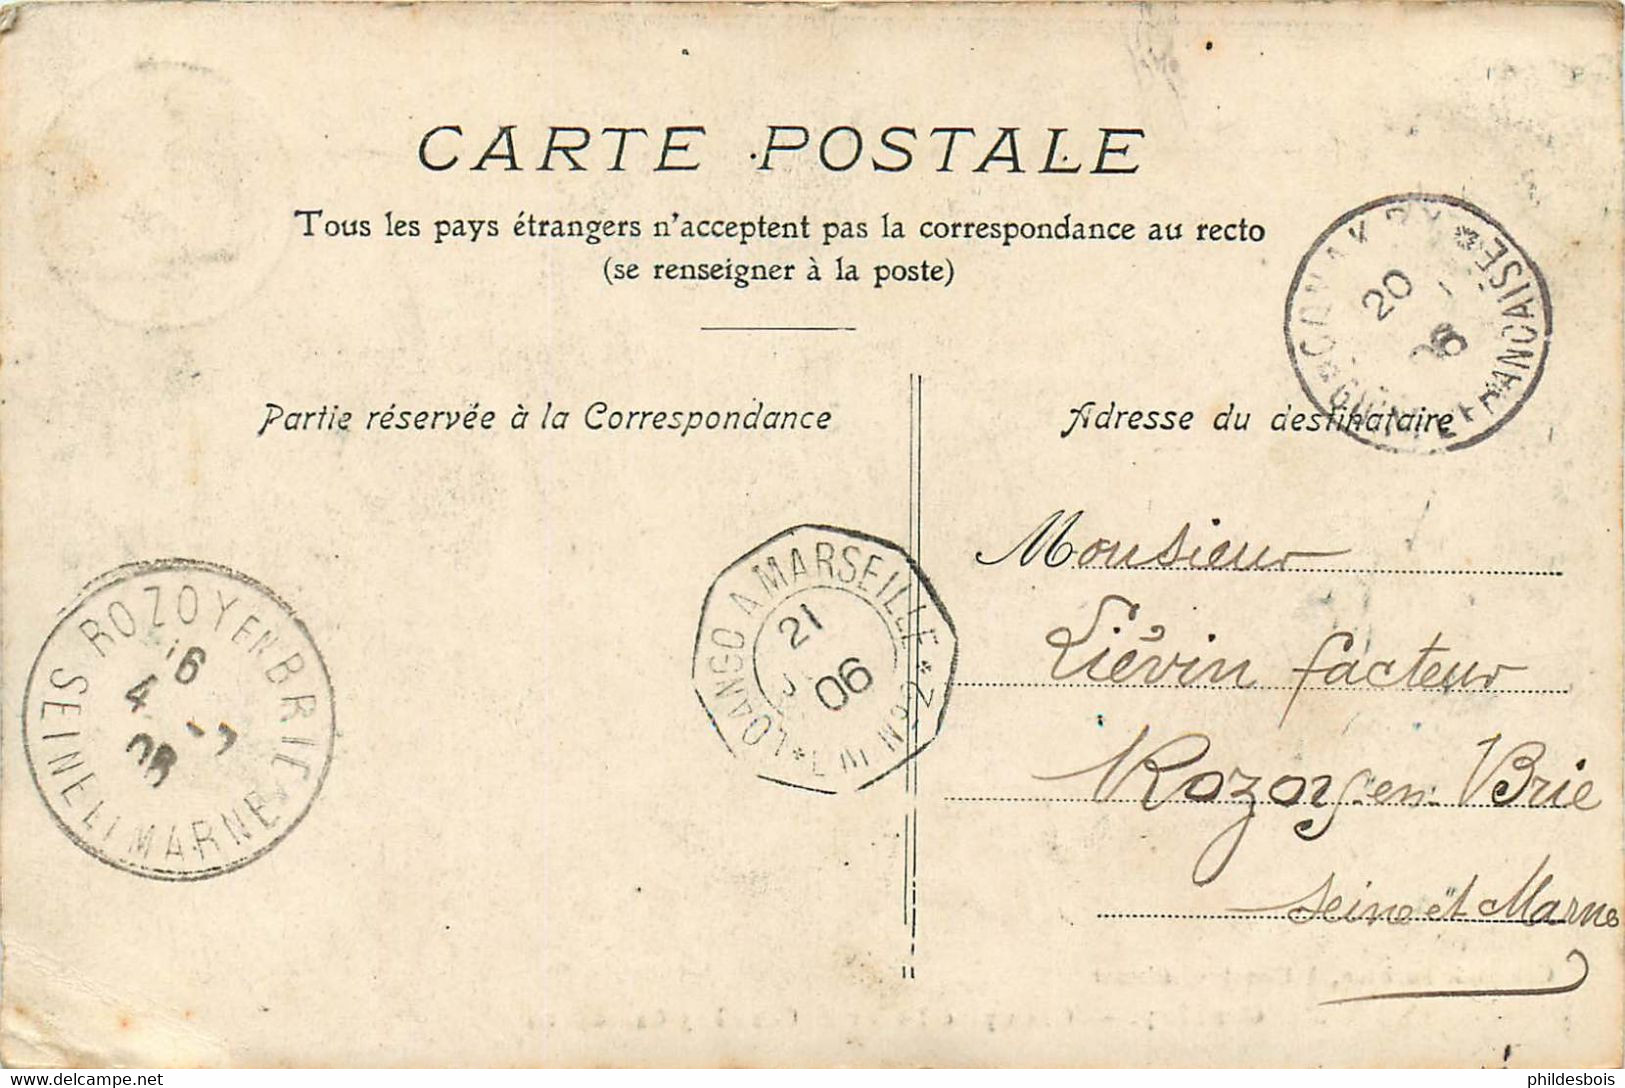 CARTE POSTALE
Tous les pays étrangers n'acceptent pas la correspondance au recto
(se renseigner à la poste)
CONAKRY
20
06
GUINÉE FRANÇAISE
Partie réservée à la Correspondance
Adresse du destinataire
Monsieur
Liévin facteur
Rozoy-en-Brie
Seine et Marne
LOANGO A MARSEILLE
21
06
ROZOY EN BRIE
SEINE ET MARNE
delcampe.net
phildesbois